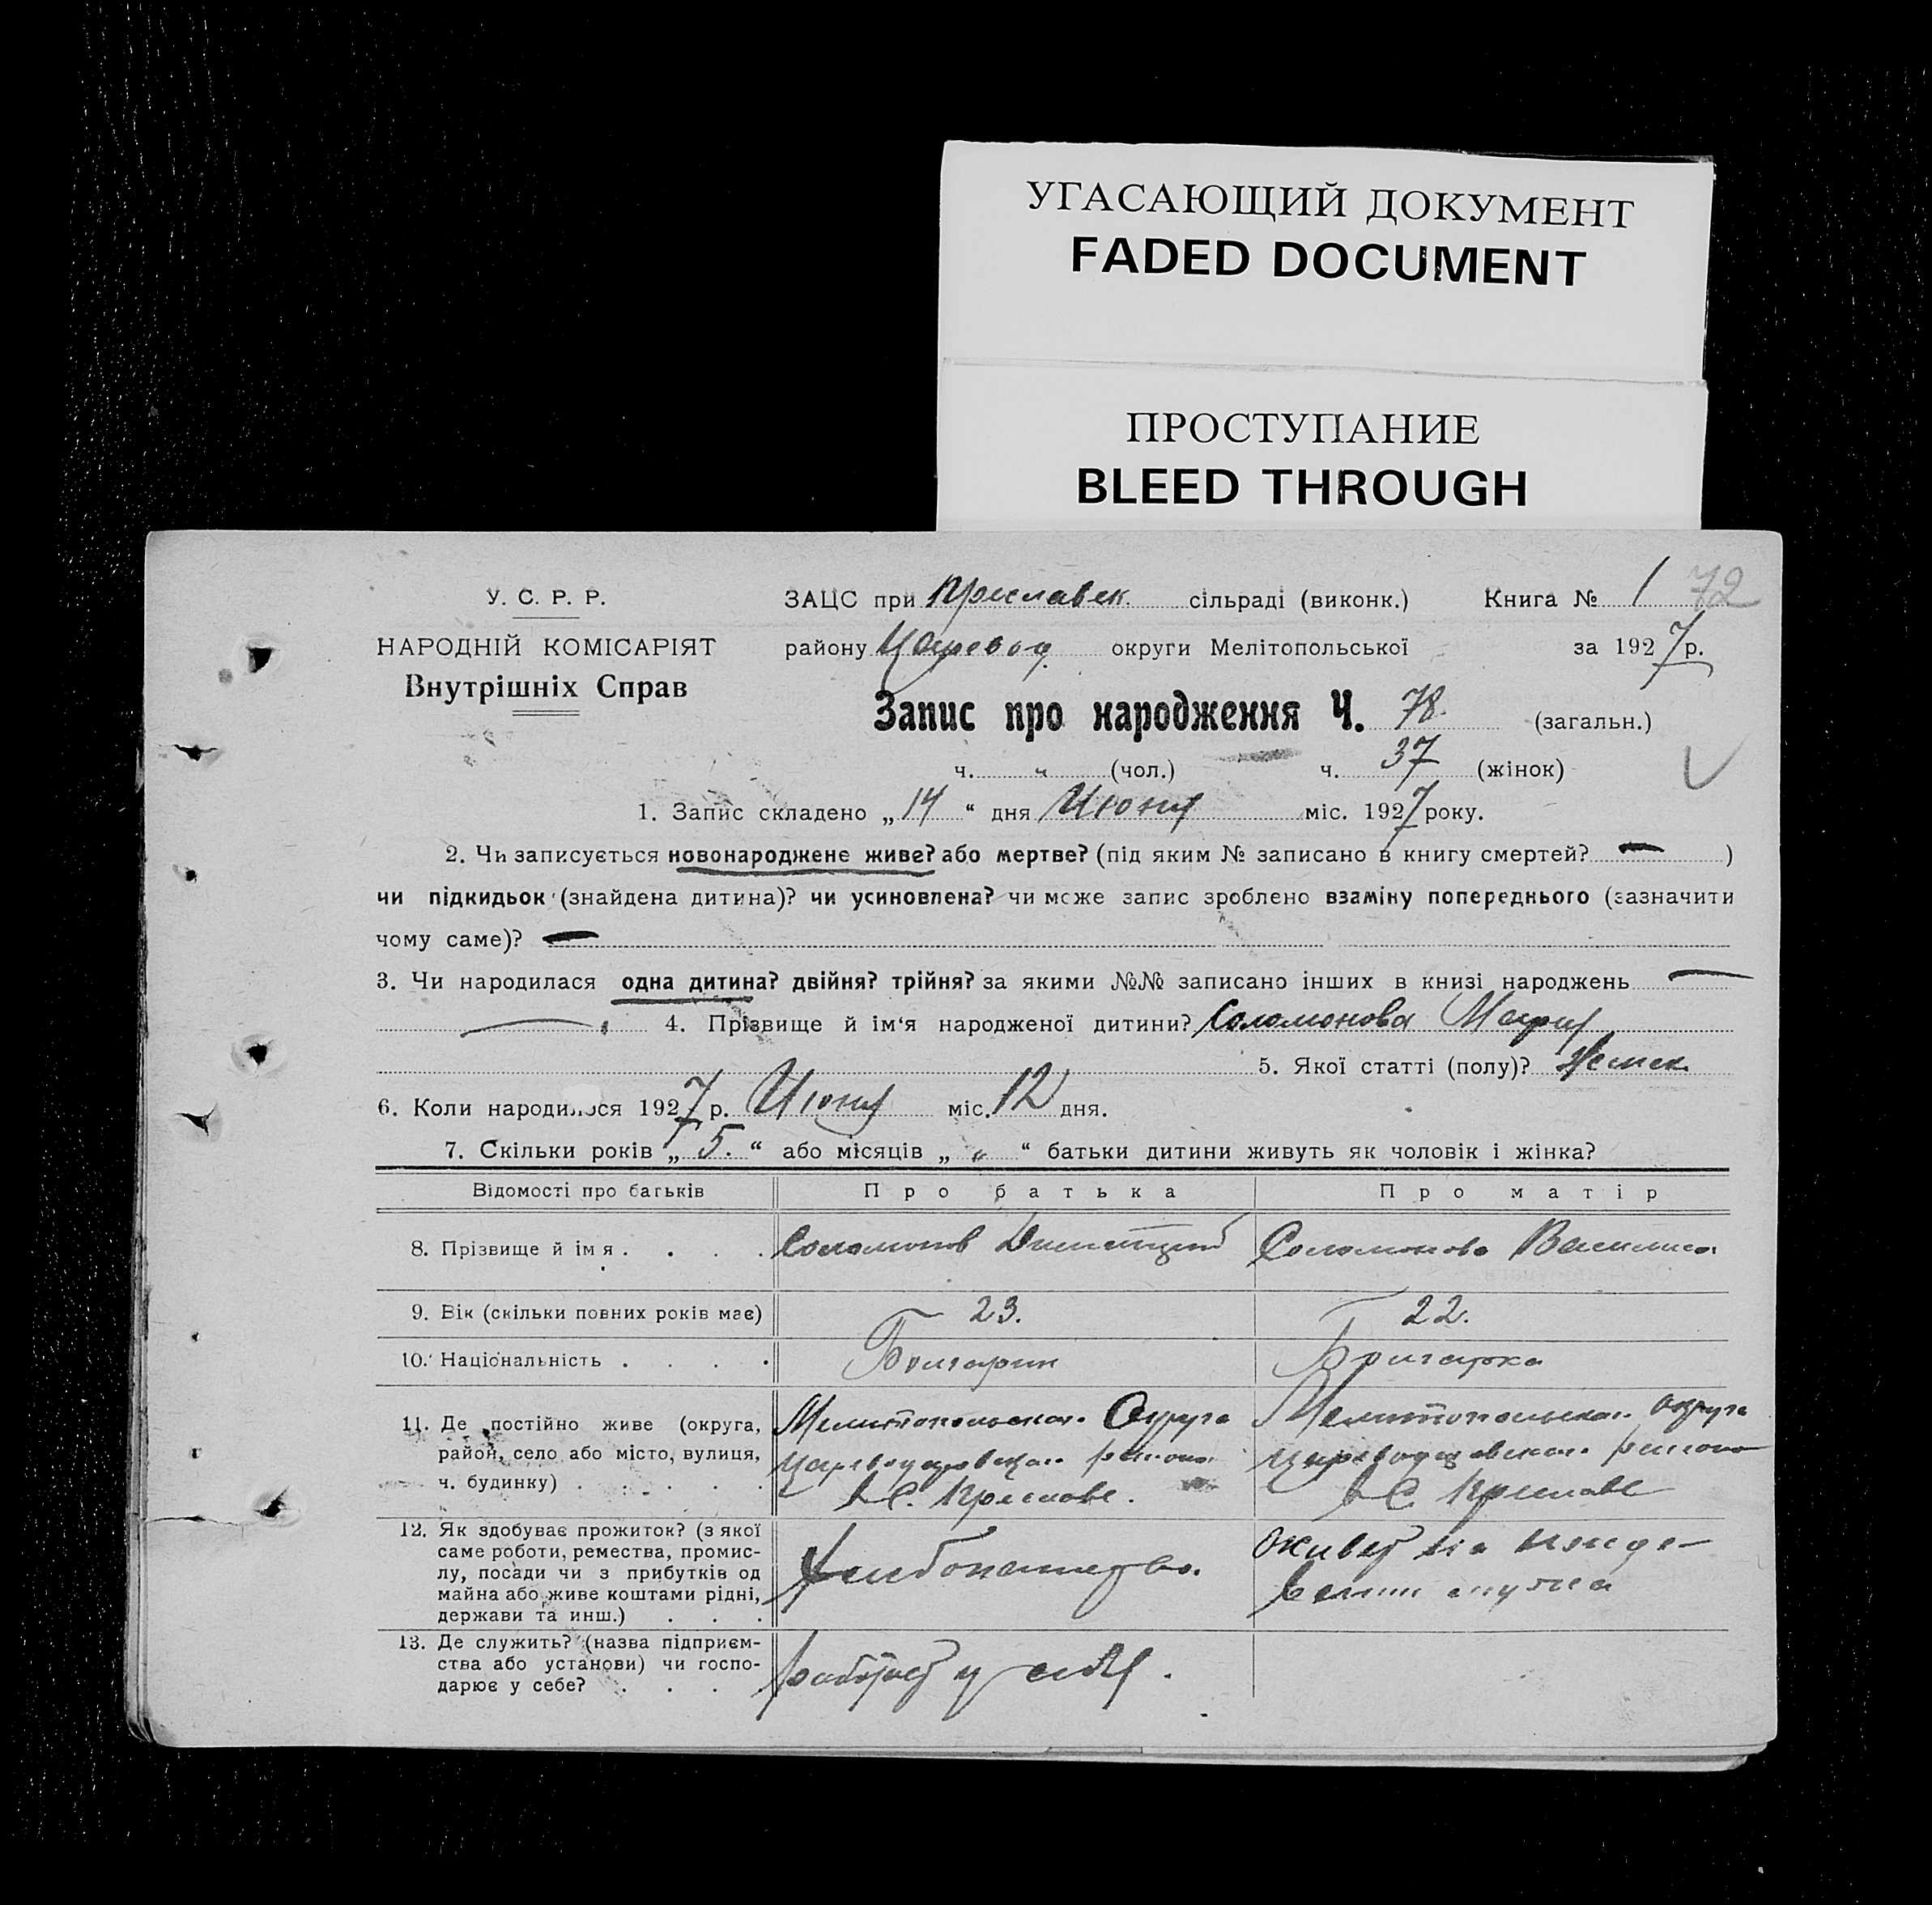 УГАСАЮЩИЙ ДОКУМЕНТ
FADED DOCUMENT
ПРОСТУПАНИЕ
BLEED THROUGH
У. С. Р. Р.
НАРОДНІЙ КОМІСАРІЯТ
Внутрішніх Справ
ЗАЦС при Преславск. сільраді (виконк.) Книга № 1 72
району Царевод. округи Мелітопольської за 1927 р.
Запис про народження Ч. 78. (загальн.)
ч. „ (чол.) ч. 37 (жінок)
1. Запис складено „14“ дня Июня міс. 1927 року.
2. Чи записується новонароджене живе? або мертве? (під яким № записано в книгу смертей? — )
чи підкидьок (знайдена дитина)? чи усиновлена? чи може запис зроблено взаміну попереднього (зазначити
чому саме)? —
3. Чи народилася одна дитина? двійня? трійня? за якими №№ записано інших в книзі народжень —
— 4. Прізвище й ім‘я народженої дитини? Соломонова Мария
5. Якої статті (полу)? Женск.
6. Коли народилося 1927 р. Июня міс. 12 дня.
7. Скільки років „ 5. “ або місяців „ „ “ батьки дитини живуть як чоловік і жінка?
Відомості про батьків Про батька Про матір
8. Прізвище й імя . . . . Соломонов Димитрий Соломонова Василиса
9. Вік (скільки повних років має) 23. 22.
10. Національність . . . . Болгарин Болгарка
11. Де постійно живе (округа, Мелитопольская Округа Мелитопольская округа
район, село або місто, вулиця, района района
ч. будинку) . . . . . С. Преслове. С. Преславе
12. Як здобуває прожиток? (з якої
саме роботи, ремества, промис-
лу, посади чи з прибутків од
майна або живе коштами рідні,
держави та инш.) . . . Хлебопашество. живет на ижде-
вении мужа
13. Де служить? (назва підприєм-
ства або установи) чи госпо-
дарює у себе? . . . . работает у себя.